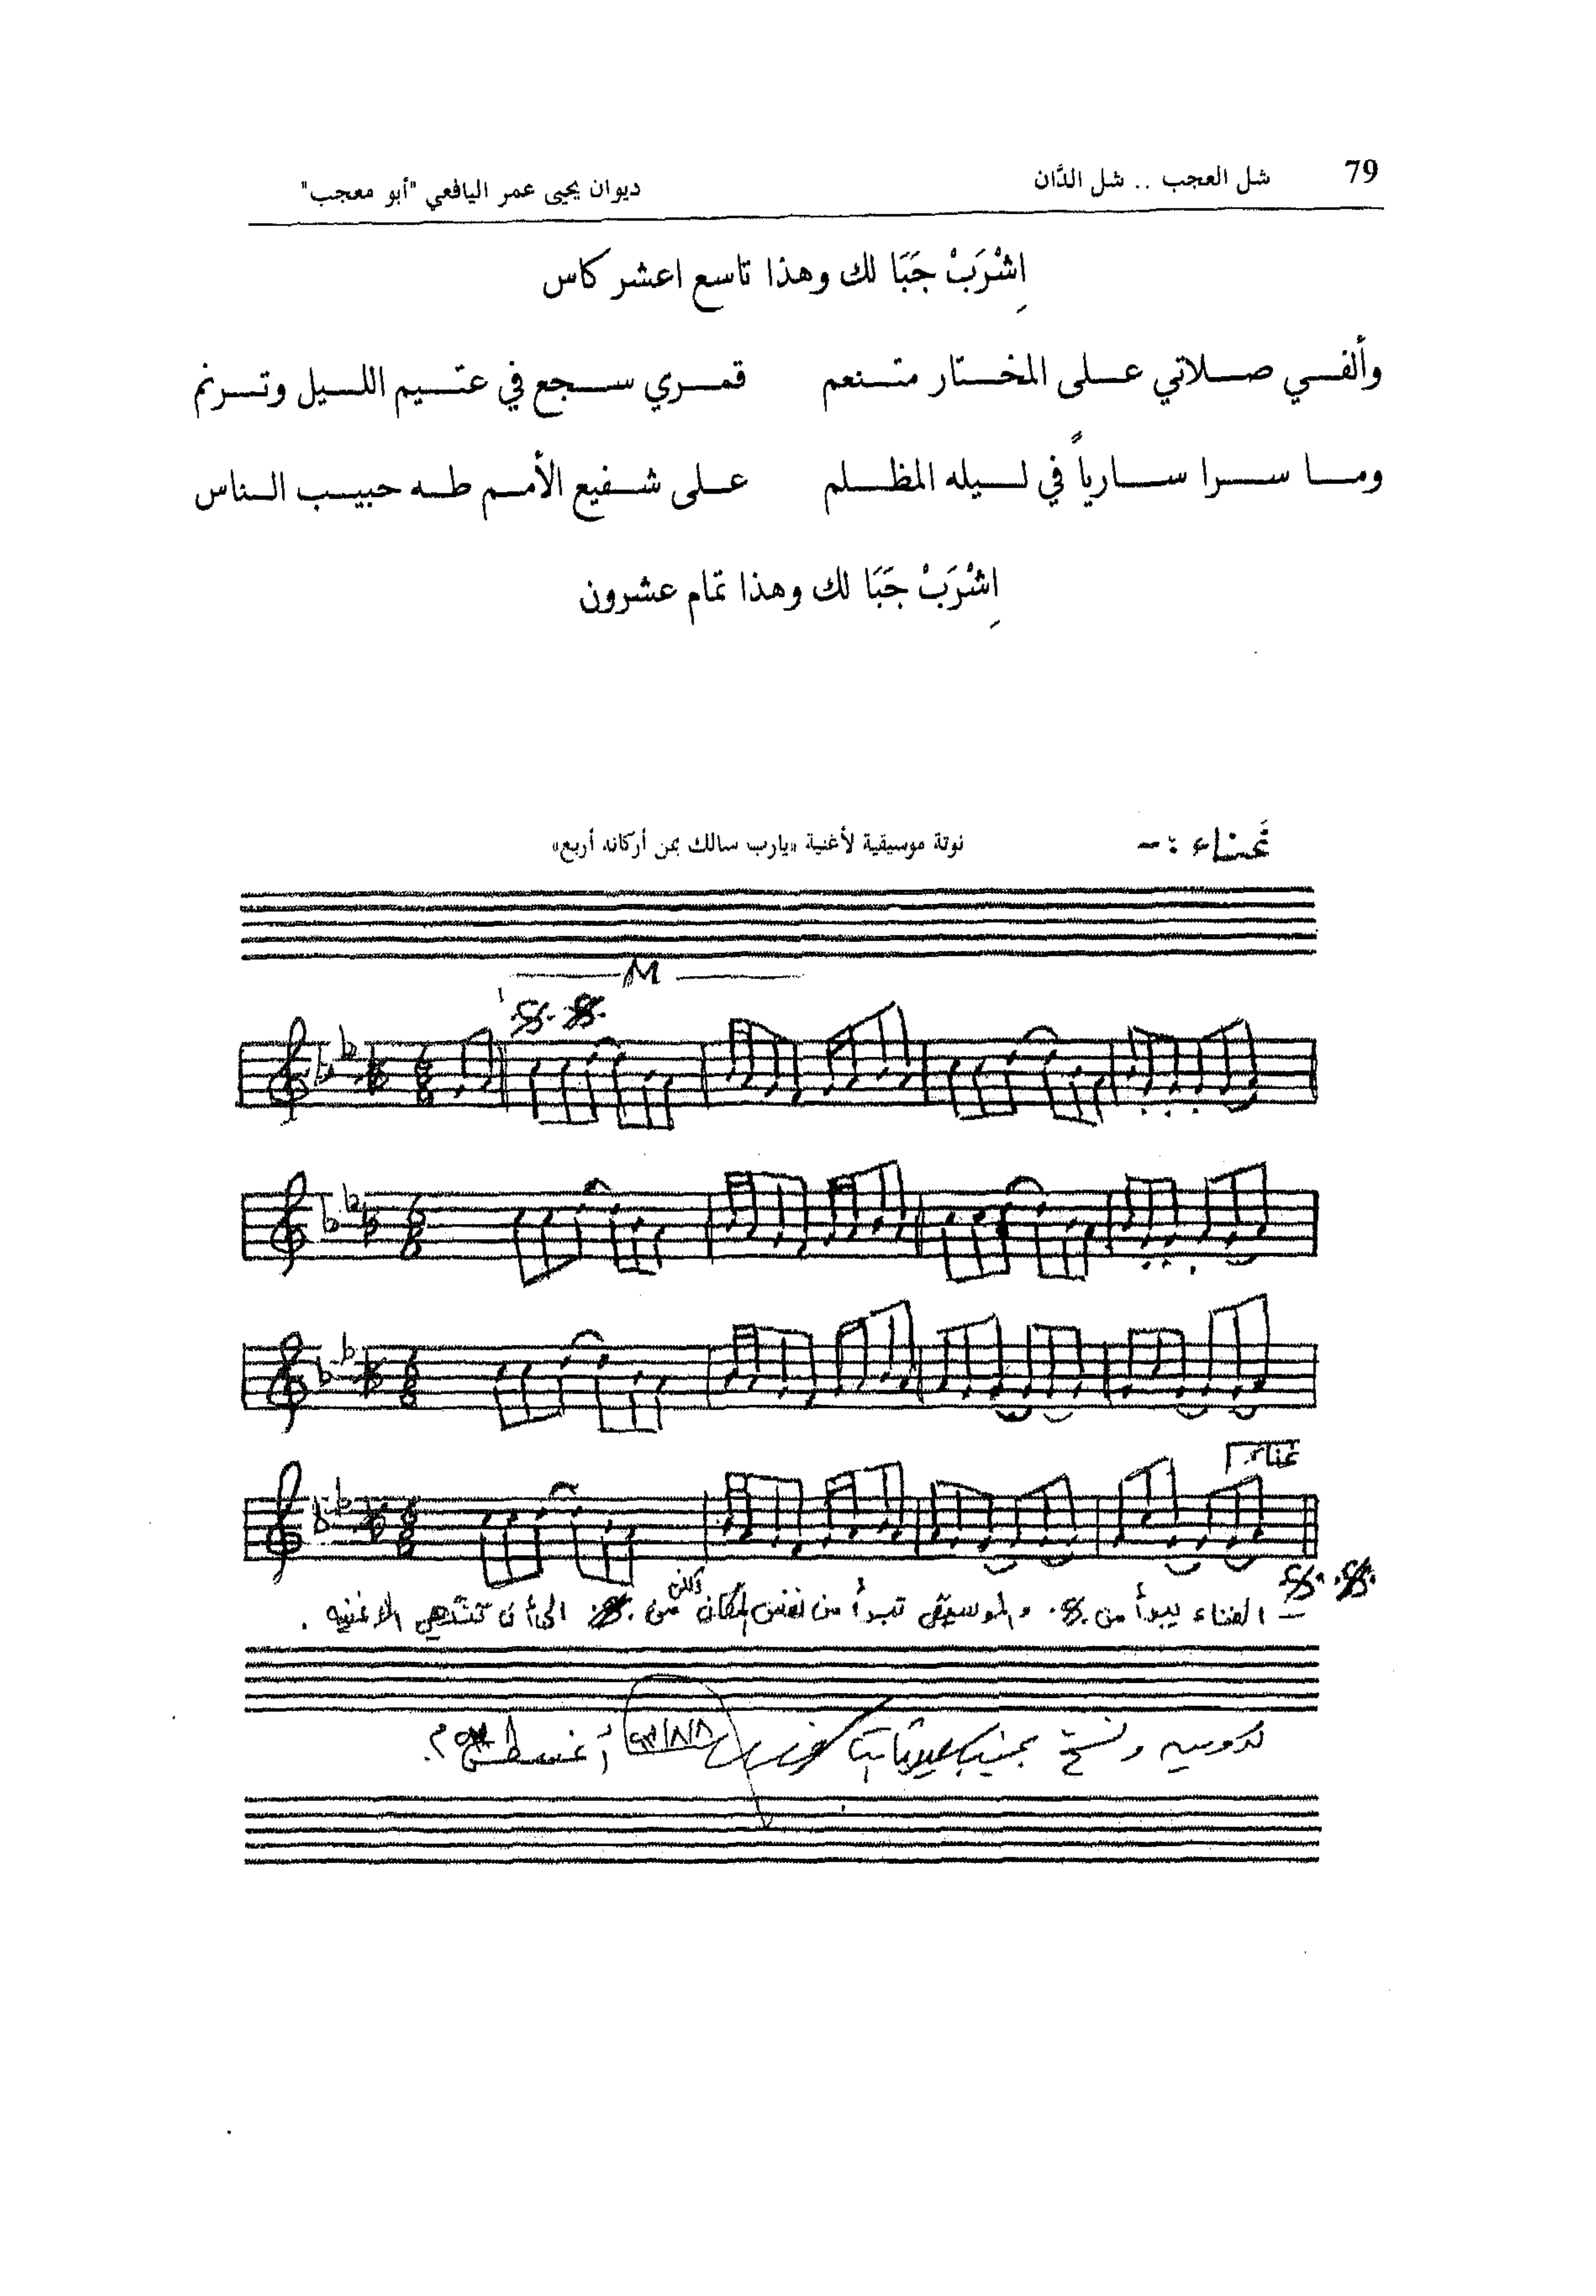 79 شل العجب .. شل الدَّان ديوان يحيى عمر اليافعي "أبو معجب"
اِشْرَبْ جَبَا لك وهذا تاسع اعشر كاس
وألفي صلاتي على المختار متنعم قمري سجع في عتيم الليل وترنم
وما سرا سارياً في ليله المظلم على شفيع الأمم طه حبيب الناس
اِشْرَبْ جَبَا لك وهذا تمام عشرون
غناء :-
نوتة موسيقية لأغنية «يارب سالك بمن أركانه أربع»
M
غناء
- الغناء يبدأ من والموسيقى تبدأ من نفس المكان ولكن من الى أن تنتهي الاغنيه .
أغسطس